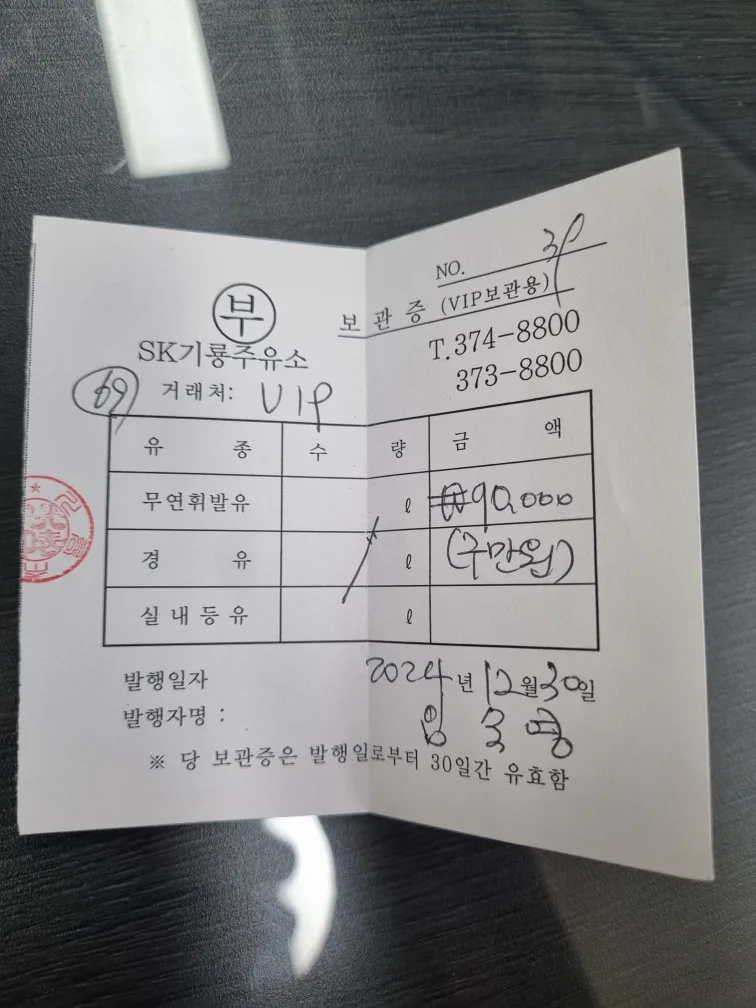 NO. 30
부 보관증 (VIP보관용)
SK기룡주유소 T.374-8800
373-8800
69 거래처: VIP
유 종 수 량 금 액
무연휘발유 ℓ ₩90,000
경 유 ℓ (구만원)
실내등유 ℓ
발행일자 2024년 12월 30일
발행자명 :
※ 당 보관증은 발행일로부터 30일간 유효함